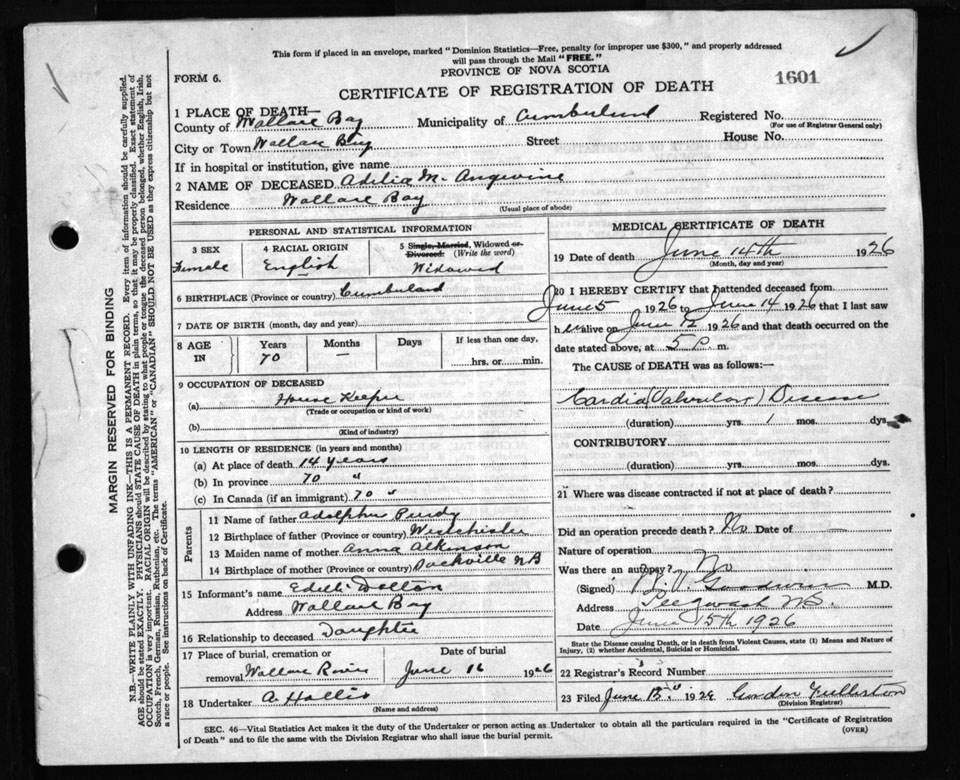 This form if placed in an envelope, marked "Dominion Statistics—Free, penalty for improper use $300," and properly addressed
will pass through the Mail "FREE."
PROVINCE OF NOVA SCOTIA
FORM 6.
1601
CERTIFICATE OF REGISTRATION OF DEATH
1 PLACE OF DEATH—
County of Wallace Bay Municipality of Cumberland Registered No.
(For use of Registrar General only)
City or Town Wallace Bay Street House No.
If in hospital or institution, give name
2 NAME OF DECEASED Adelia M. Angevine
Residence Wallace Bay
(Usual place of abode)
PERSONAL AND STATISTICAL INFORMATION
3 SEX 4 RACIAL ORIGIN 5 Single, Married, Widowed or
Divorced: (Write the word)
Female English Widowed
6 BIRTHPLACE (Province or country) Cumberland
7 DATE OF BIRTH (month, day and year)
8 AGE IN Years Months Days If less than one day,
70 — hrs. or min.
9 OCCUPATION OF DECEASED
(a) House Keeper
(Trade or occupation or kind of work)
(b)
(Kind of industry)
10 LENGTH OF RESIDENCE (in years and months)
(a) At place of death 14 years
(b) In province 70 "
(c) In Canada (if an immigrant) 70 "
Parents
11 Name of father Adolphus Purdy
12 Birthplace of father (Province or country) Westchester
13 Maiden name of mother Anna Atkinson
14 Birthplace of mother (Province or country) Sackville NB
15 Informant's name Delton
Address Wallace Bay
16 Relationship to deceased Daughter
17 Place of burial, cremation or Date of burial
removal Wallace June 16 1926
18 Undertaker A Hollis
(Name and address)
MEDICAL CERTIFICATE OF DEATH
19 Date of death June 14th 1926
(Month, day and year)
20 I HEREBY CERTIFY that I attended deceased from
June 5 1926 to June 14 1926 that I last saw
her alive on June 12 1926 and that death occurred on the
date stated above, at 5 P. m.
The CAUSE of DEATH was as follows:—
Cardia (Valvular) Disease
(duration) yrs. 1 mos. dys.
CONTRIBUTORY
(duration) yrs. mos. dys.
21 Where was disease contracted if not at place of death?
Did an operation precede death? No Date of —
Nature of operation
Was there an autopsy? No
(Signed) Goodwin M.D.
Address Pugwash N.S.
Date June 15th 1926
State the Disease causing Death, or in death from Violent Causes, state (1) Means and Nature of
Injury, (2) whether Accidental, Suicidal or Homicidal.
22 Registrar's Record Number
23 Filed June 1926 Gordon Fullerton
(Division Registrar)
SEC. 46—Vital Statistics Act makes it the duty of the Undertaker or person acting as Undertaker to obtain all the particulars required in the "Certificate of Registration
of Death" and to file the same with the Division Registrar who shall issue the burial permit.
(OVER)
MARGIN RESERVED FOR BINDING
N.B.—WRITE PLAINLY WITH UNFADING INK—THIS IS A PERMANENT RECORD. Every item of information should be carefully supplied.
AGE should be stated EXACTLY. PHYSICIANS should STATE CAUSE OF DEATH in plain terms, so that it may be properly classified. Exact statement of
OCCUPATION is very important. RACIAL ORIGIN will be described by stating to what people or tongue the deceased person belonged, whether English, Irish,
Scotch, French, German, Russian, Ruthenian, etc. The terms "AMERICAN" or "CANADIAN" SHOULD NOT BE USED as they express citizenship but not
a race or people. See instructions on back of Certificate.